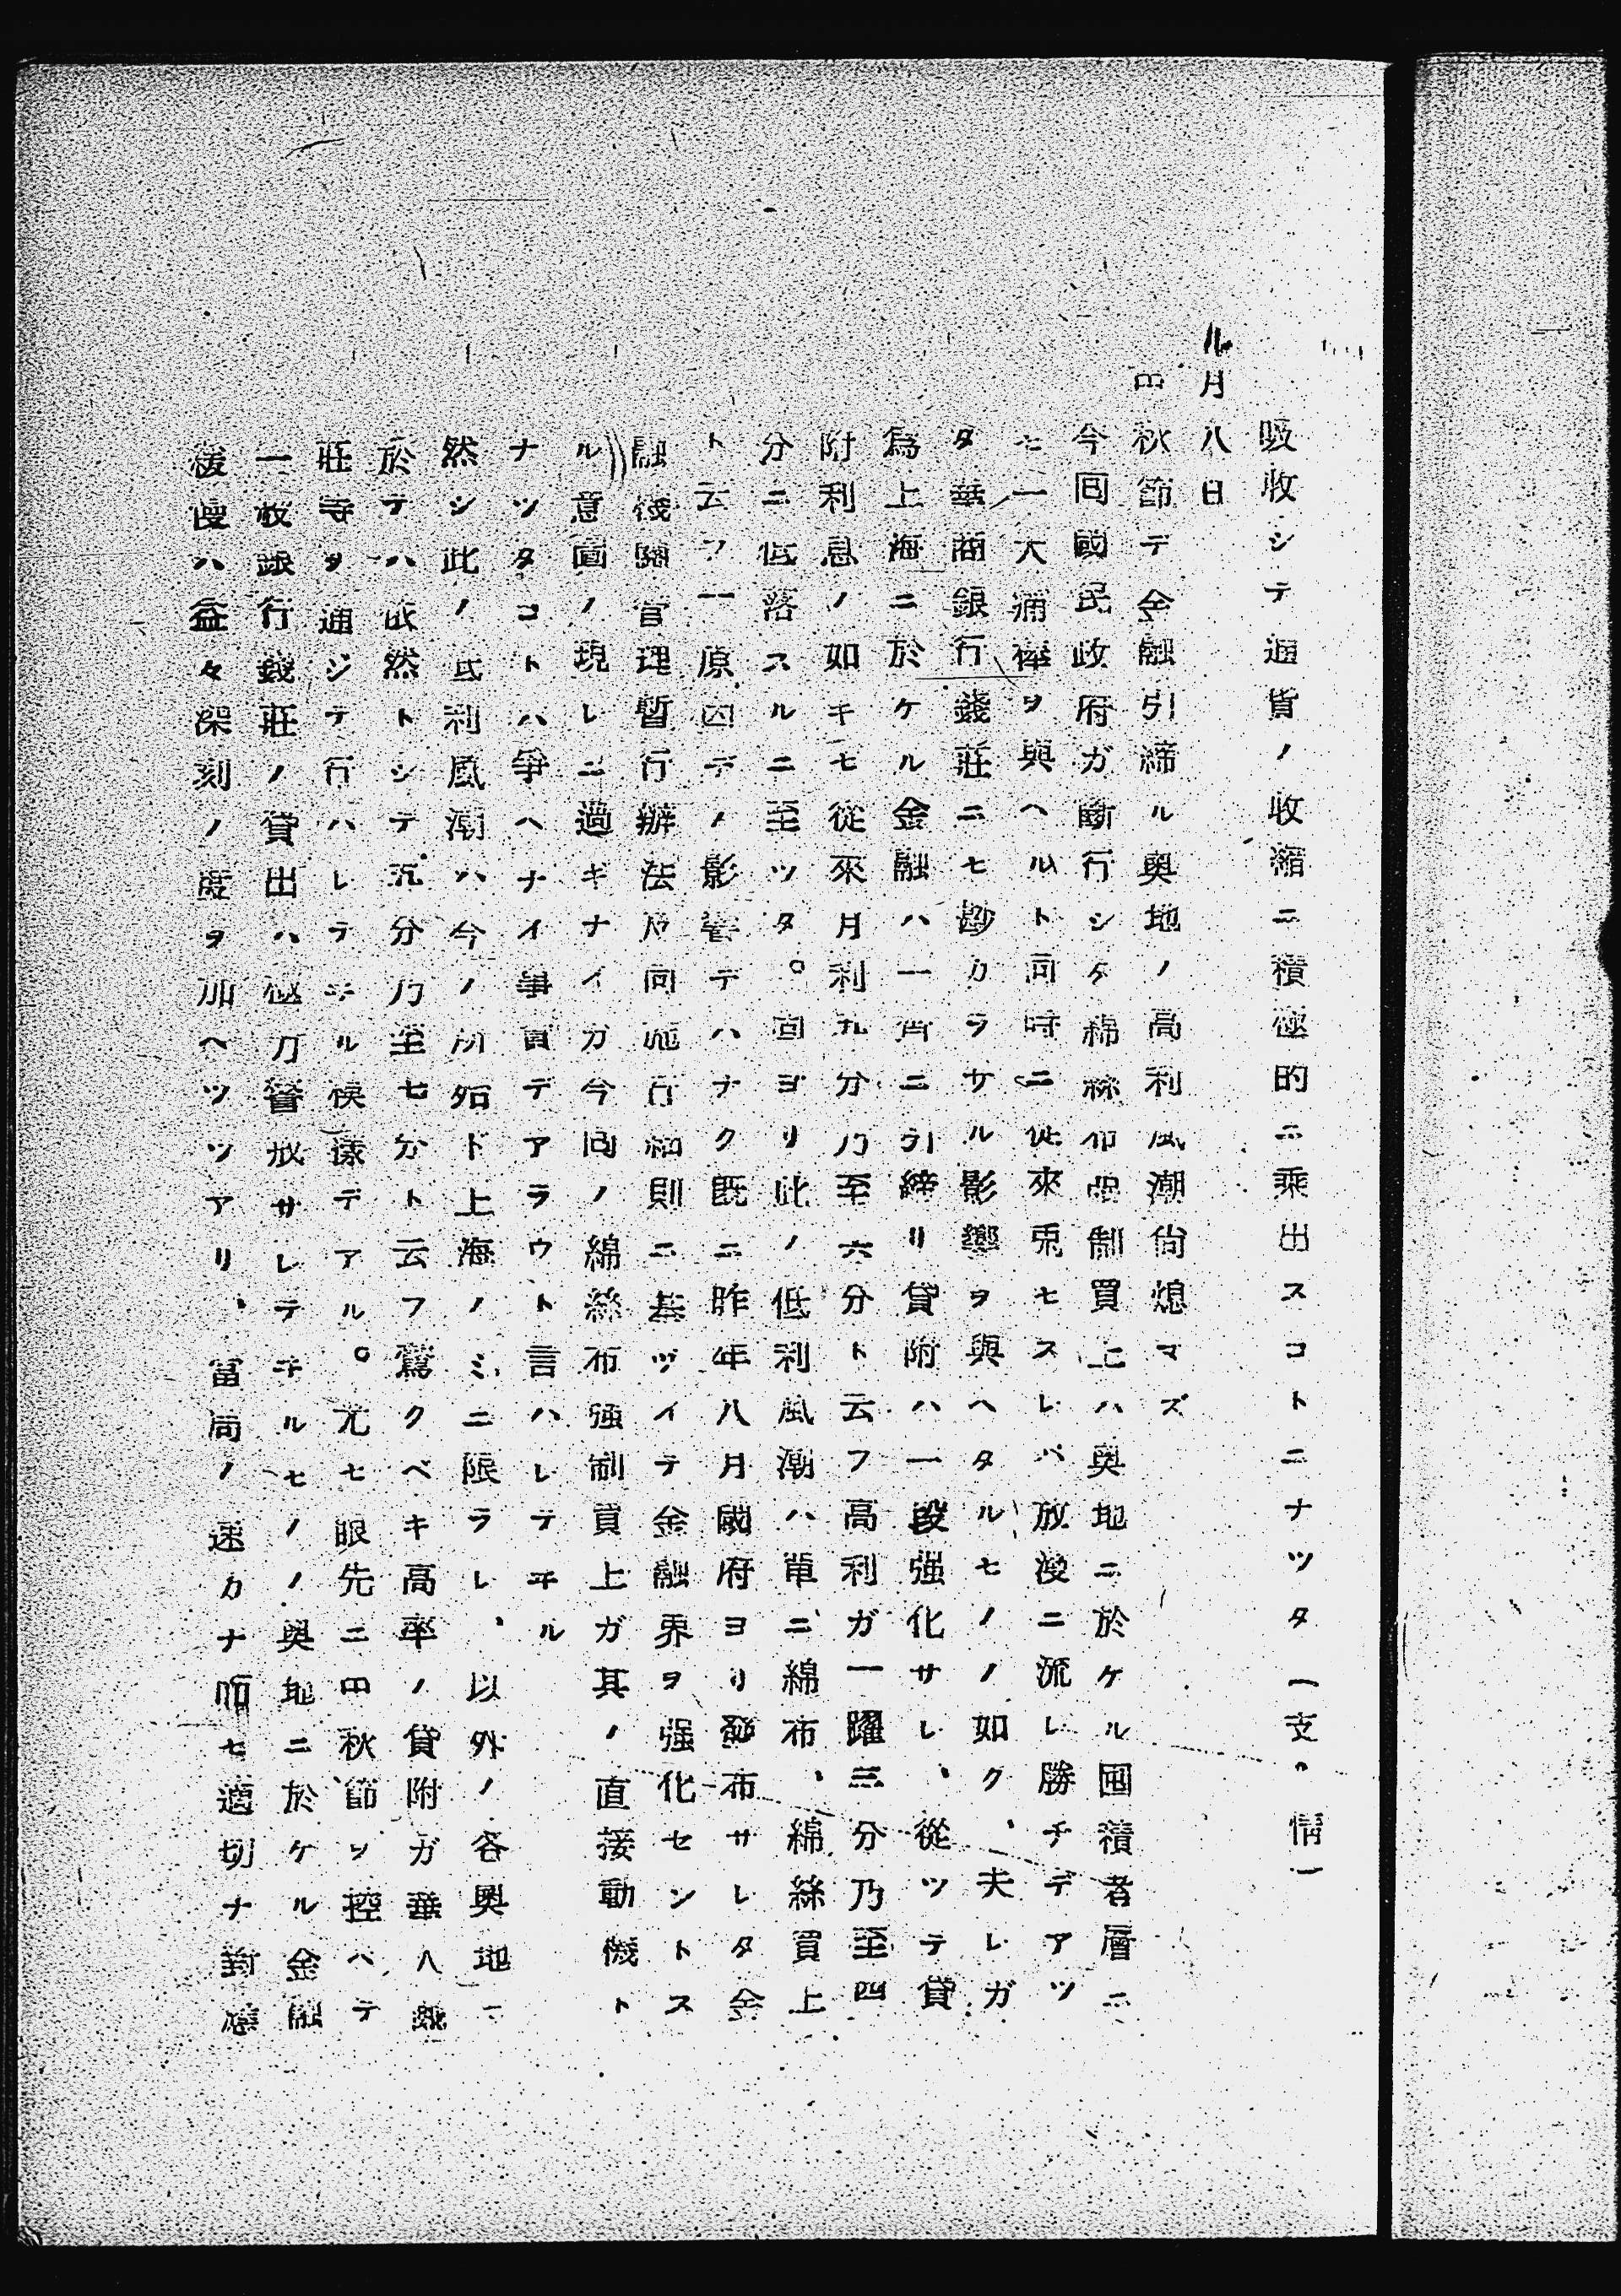 吸收シテ通貨ノ收縮ニ積極的ニ乘出スコトニナツタ(支・情)
九月八日
中秋節デ金融引締ル奧地ノ高利風潮尙熄マズ
今回國民政府ガ斷行シタ綿絲布强制買上ハ奧地ニ於ケル囤積者層ニ
モ一大痛棒ヲ與ヘルト同時ニ從來兎モスレバ放漫ニ流レ勝チデアツ
タ華商銀行錢莊ニモ尠カラザル影響ヲ與ヘタルモノノ如ク、夫レガ
爲上海ニ於ケル金融ハ一齊ニ引締リ貸附ハ一段强化サレ、從ツテ貸
附利息ノ如キモ從來月利九分乃至六分ト云フ高利ガ一躍三分乃至四
分ニ低落スルニ至ツタ。固ヨリ此ノ低利風潮ハ單ニ綿布、綿絲買上
ト云フ一原因デノ影響デハナク既ニ昨年八月國府ヨリ發布サレタ金
融機關管理暫行辦法及同施行細則ニ基ヅイテ金融界ヲ强化セントス
ル意圖ノ現レニ過ギナイガ今回ノ綿絲布强制買上ガ其ノ直接動機ト
ナツタコトハ爭ヘナイ事實デアラウト言ハレテヰル
然シ此ノ低利風潮ハ今ノ所殆ド上海ノミニ限ラレ、以外ノ各奧地ニ
於テハ依然トシテ九分乃至七分ト云フ驚クベキ高率ノ貸附ガ華人錢
莊等ヲ通ジテ行ハレテヰル模樣デアル。尤モ眼先ニ中秋節ヲ控ヘテ
一般銀行錢莊ノ貸出ハ極力警戒サレテヰルモノノ奧地ニ於ケル金融
緩慢ハ益々深刻ノ度ヲ加ヘツツアリ、當局ノ速カナ而モ適切ナ對應